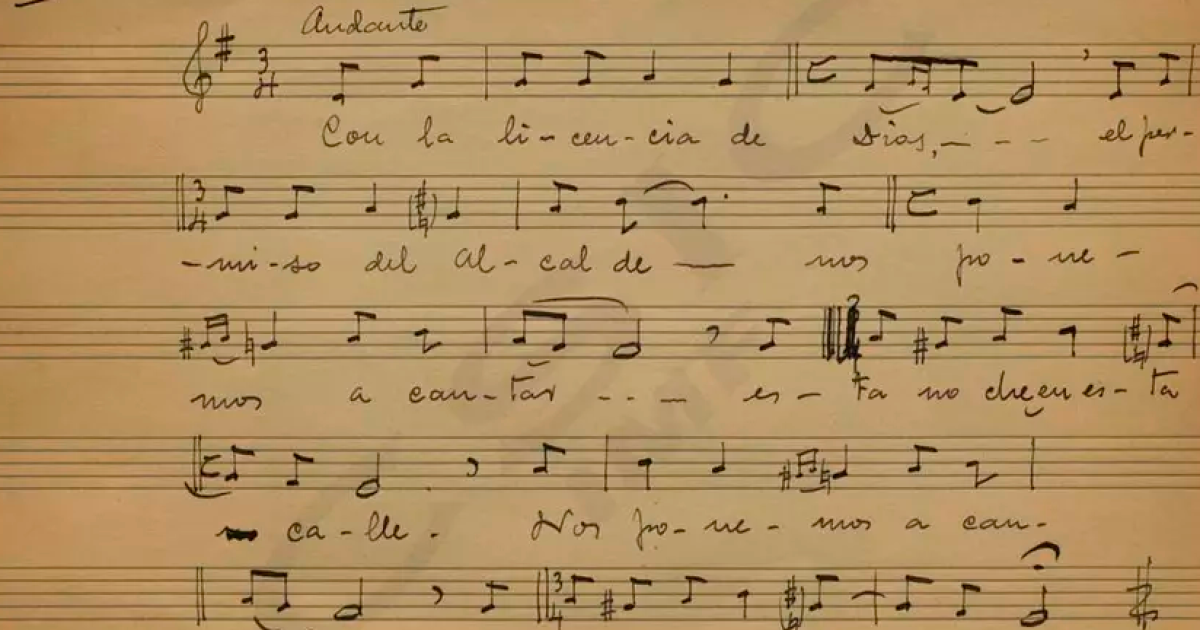 Andante
3
4
Con la li-cen-cia de Dios, - - - el per-
3
4
-mi-so del Al-cal de — nos po-ne-
mos a can-tar - - - es-ta no che en es-ta
ca-lle. Nos po-ne-mos a can-
3
4